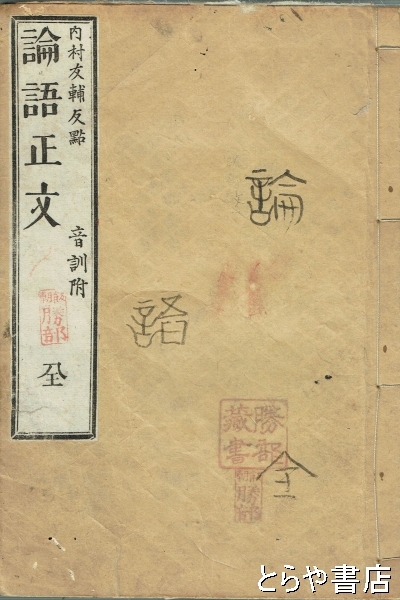 内村友輔反點
論語正文
音訓附
全
論
語
全
勝部
蔵書
とらや書店